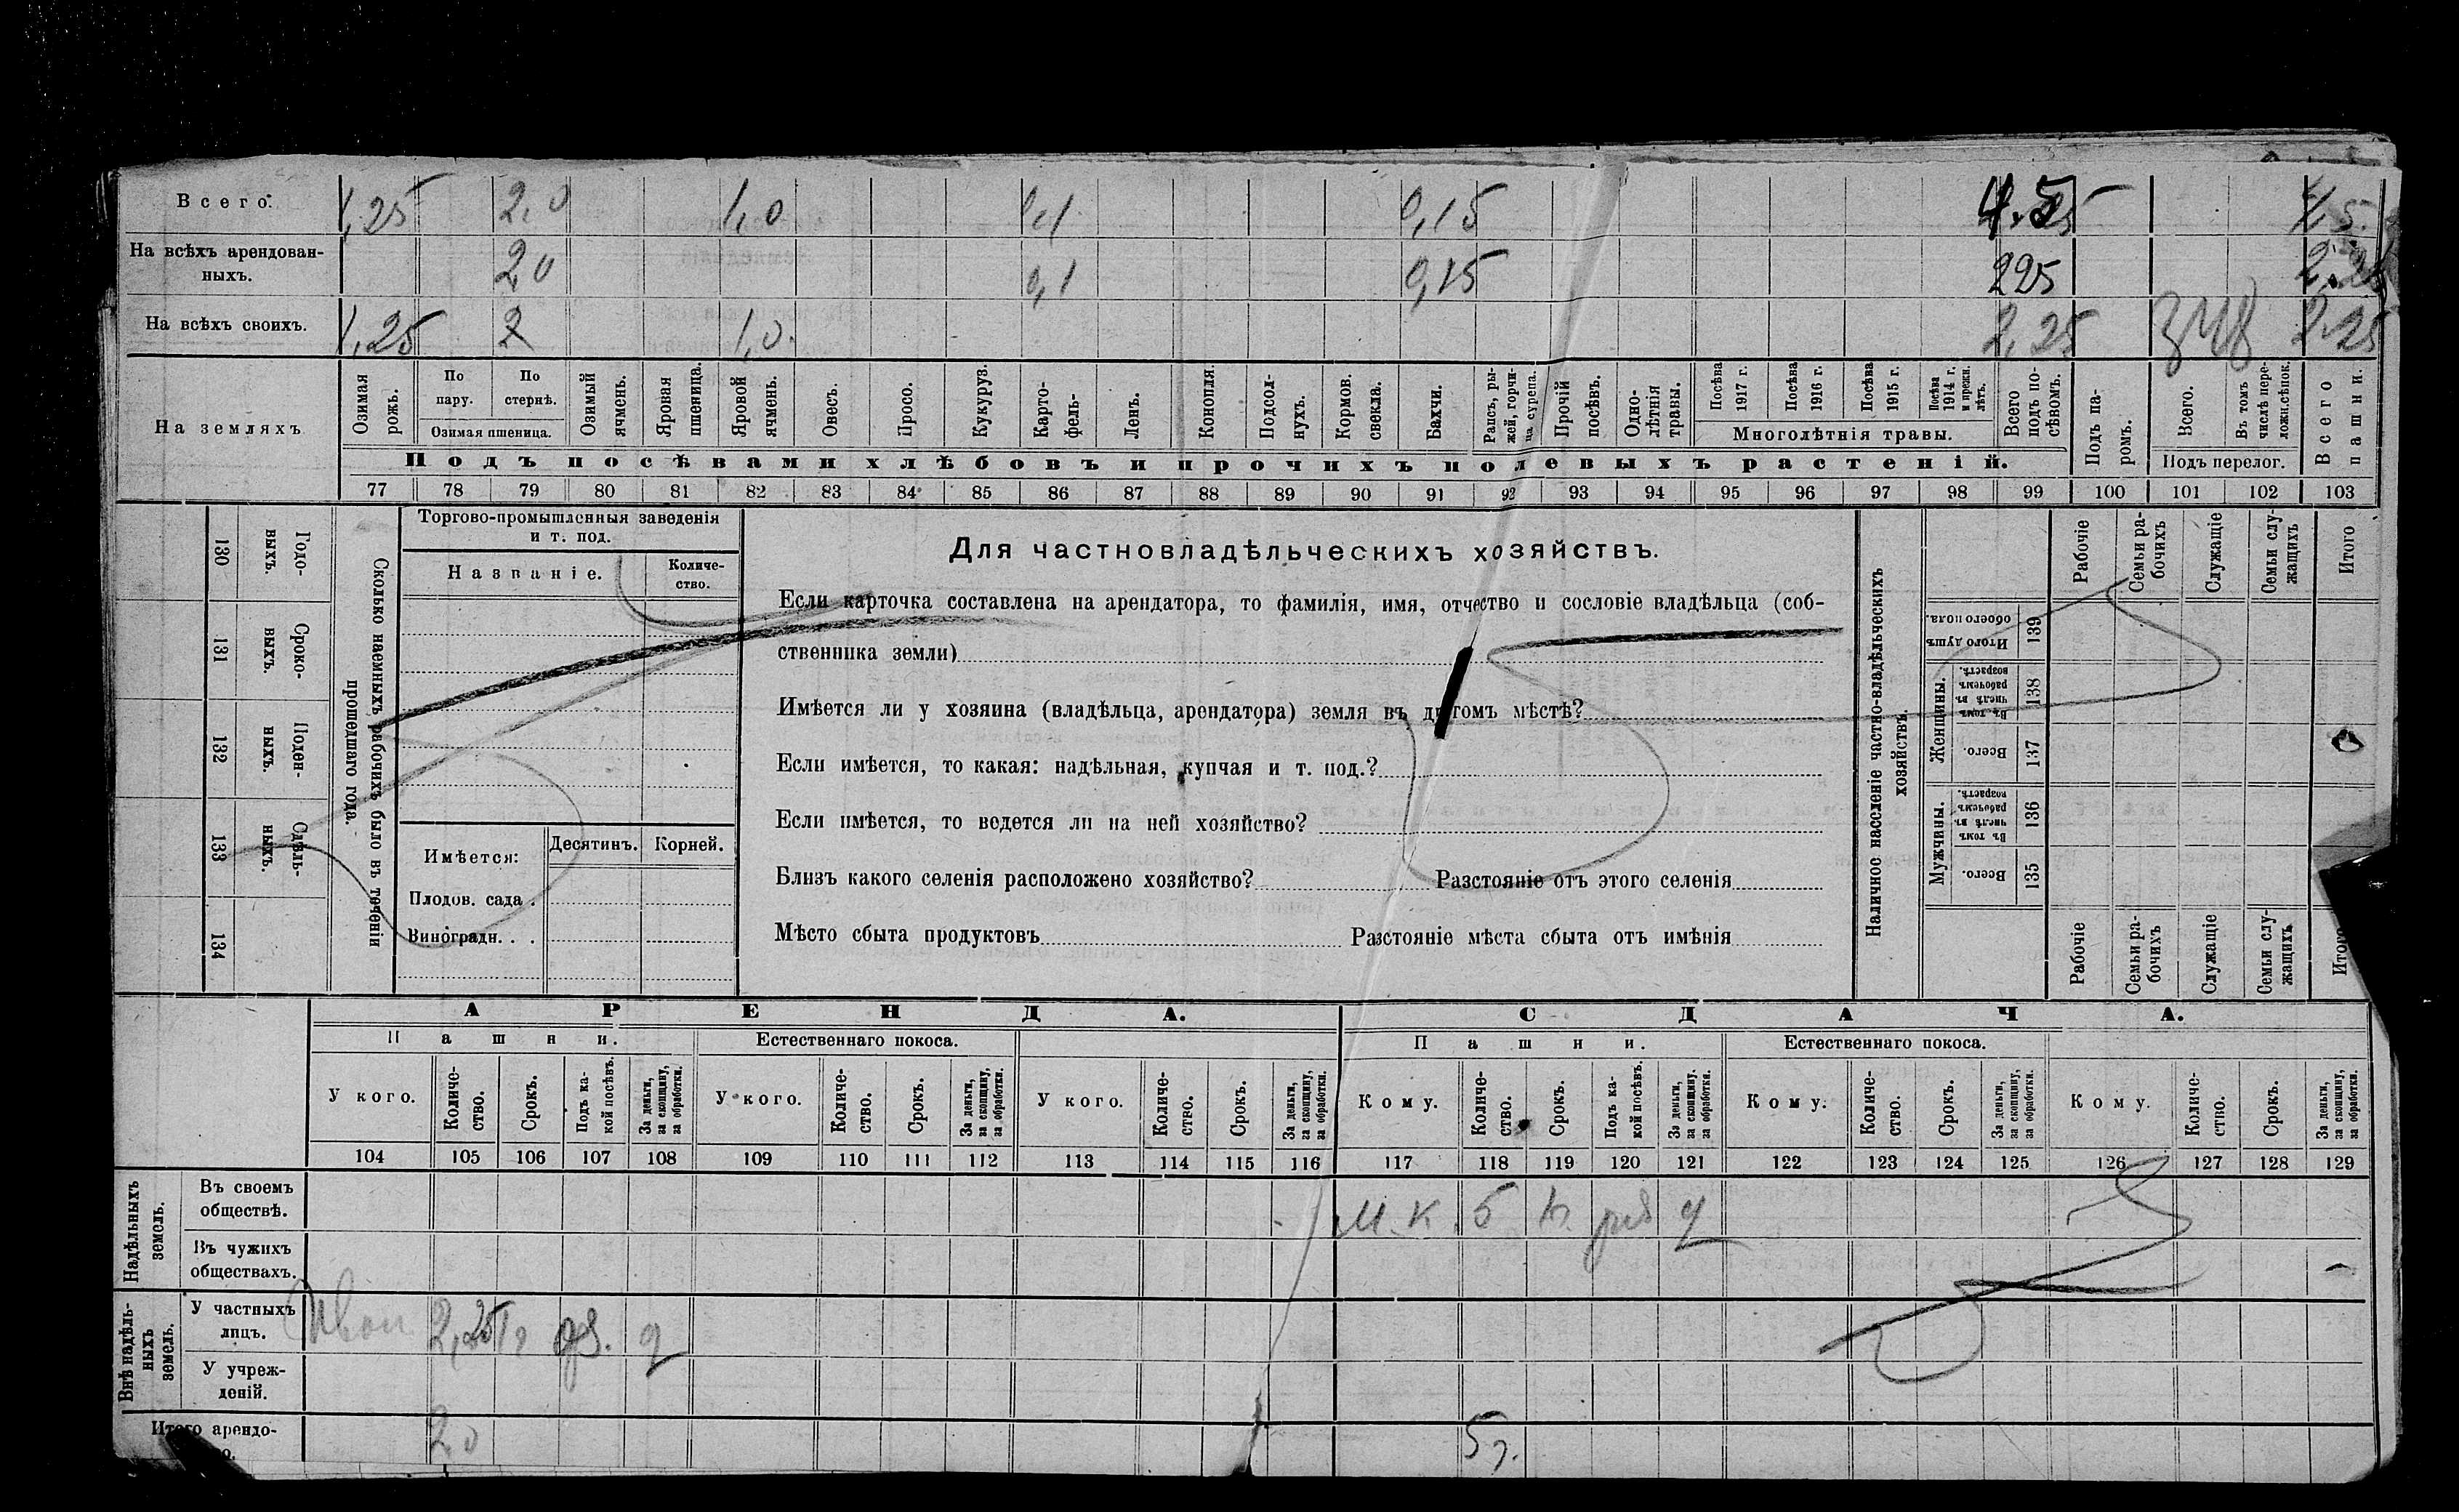 Всего. 1,25 2,0 1,0 0,1 0,15 4.5 4,5.
На всѣхъ арендован-
ныхъ. 20 0,1 0,15 225
На всѣхъ своихъ. 1,25 2 1,0. 2,25 2.25
На земляхъ
Озимая рожь.
По пару.
По стернѣ.
Озимая пшеница.
Озимый ячмень.
Яровая пшеница.
Яровой ячмень.
Овесъ.
Просо.
Кукуруз.
Карто-
фель.
Ленъ.
Конопля.
Подсол-
нухъ.
Кормов. свекла.
Бахчи.
Рапсъ, ры-
жей, горчи-
ца сурепа.
Прочій посѣвъ.
Одно-
лѣтнія травы.
Посѣва 1917 г.
Посѣва 1916 г.
Посѣва 1915 г.
Посѣва 1914 г. и прежн. лѣтъ.
Многолѣтнія травы.
Всего подъ по-
сѣвомъ.
Подъ па-
ромъ.
Всего.
Въ томъ числѣ пере-
ложн.сѣнок.
Подъ перелог.
Всего пашни.
Подъ посѣвами хлѣбовъ и прочихъ полевыхъ растеній.
77 78 79 80 81 82 83 84 85 86 87 88 89 90 91 92 93 94 95 96 97 98 99 100 101 102 103
130 131 132 133 134
Годо-
выхъ.
Сроко-
выхъ.
Поден-
ныхъ.
Сдѣль-
ныхъ.
Сколько наемныхъ рабочихъ было въ теченіи
прошедшаго года.
Торгово-промышленныя заведенія
и т. под.
Названіе.
Количе-
ство.
Имѣется:
Десятинъ. Корней.
Плодов. сада .
Виноградн. . .
Для частновладѣльческихъ хозяйствъ.
Если карточка составлена на арендатора, то фамилія, имя, отчество и сословіе владѣльца (соб-
ственника земли)
Имѣется ли у хозяина (владѣльца, арендатора) земля въ другомъ мѣстѣ?
Если имѣется, то какая: надѣльная, купчая и т. под.?
Если имѣется, то ведется ли на ней хозяйство?
Близъ какого селенія расположено хозяйство? Разстояніе отъ этого селенія
Мѣсто сбыта продуктовъ Разстояніе мѣста сбыта отъ имѣнія
Наличное населеніе частно-владѣльческихъ
хозяйствъ.
Рабочіе
Семьи ра-
бочихъ
Служащіе
Семьи слу-
жащихъ
Итого
Итого душъ обоего пола. 139
Женщины.
Въ томъ числѣ въ рабочемъ возрастѣ. 138
Всего. 137
Мужчины.
Въ томъ числѣ въ рабочемъ возрастѣ. 136
Всего. 135
Рабочіе
Семьи ра-
бочихъ
Служащіе
Семьи слу-
жащихъ
Итого
АРЕНДА. СДАЧА.
Пашни. Естественнаго покоса. Пашни. Естественнаго покоса.
У кого.
Количе-
ство.
Срокъ.
Подъ ка-
кой посѣвъ.
За деньги,
за скопщину,
за обработки.
У кого.
Количе-
ство.
Срокъ.
За деньги,
за скопщину,
за обработки.
У кого.
Количе-
ство.
Срокъ.
За деньги,
за скопщину,
за обработки.
Кому.
Количе-
ство.
Срокъ.
Подъ ка-
кой посѣвъ.
За деньги,
за скопщину.
за обработки.
Кому.
Количе-
ство.
Срокъ.
За деньги,
за скопщину,
за обработки.
Кому.
Количе-
ство.
Срокъ.
За деньги,
за скопщину,
за обработки.
104 105 106 107 108 109 110 111 112 113 114 115 116 117 118 119 120 121 122 123 124 125 126 127 128 129
Надѣльныхъ
земель.
Въ своемъ
обществѣ. М. К. 5
Въ чужихъ
обществахъ.
Внѣ надѣль-
ныхъ
земель.
У частныхъ
лицъ. 2,25
У учреж-
деній.
Итого арендо- 20 5